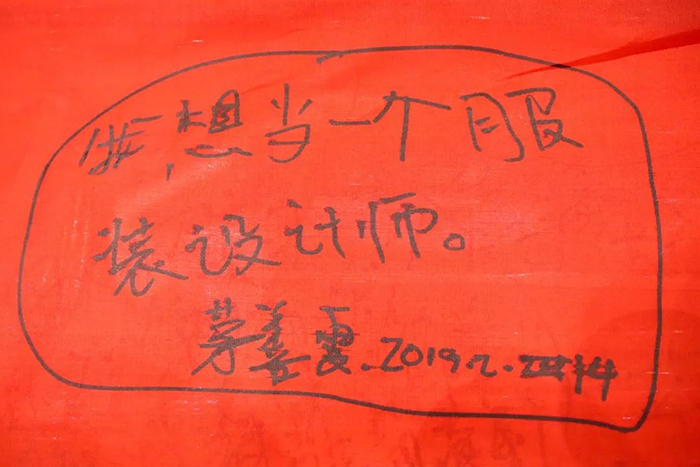 我想当一个服
装设计师。
茅姜雯.2019.2.